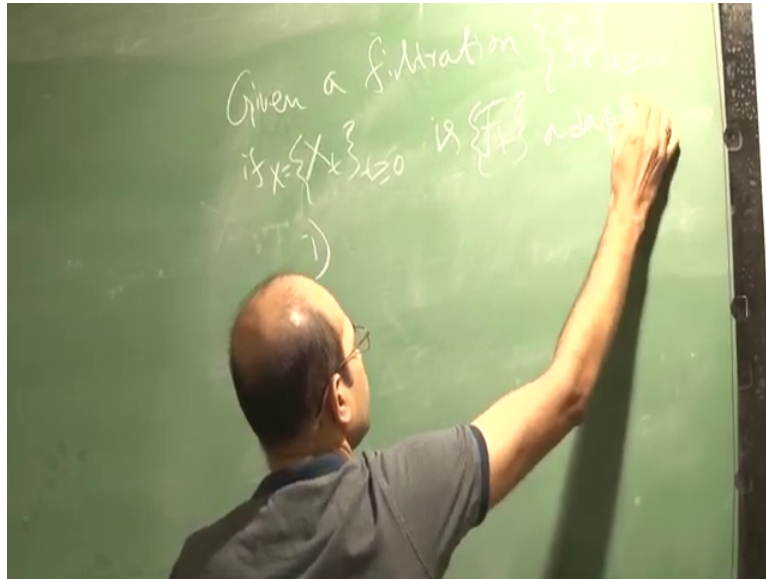 Given a filtration {F_t}_{t≥0}
if X={X_t}_{t≥0} is {F_t} adap
i)